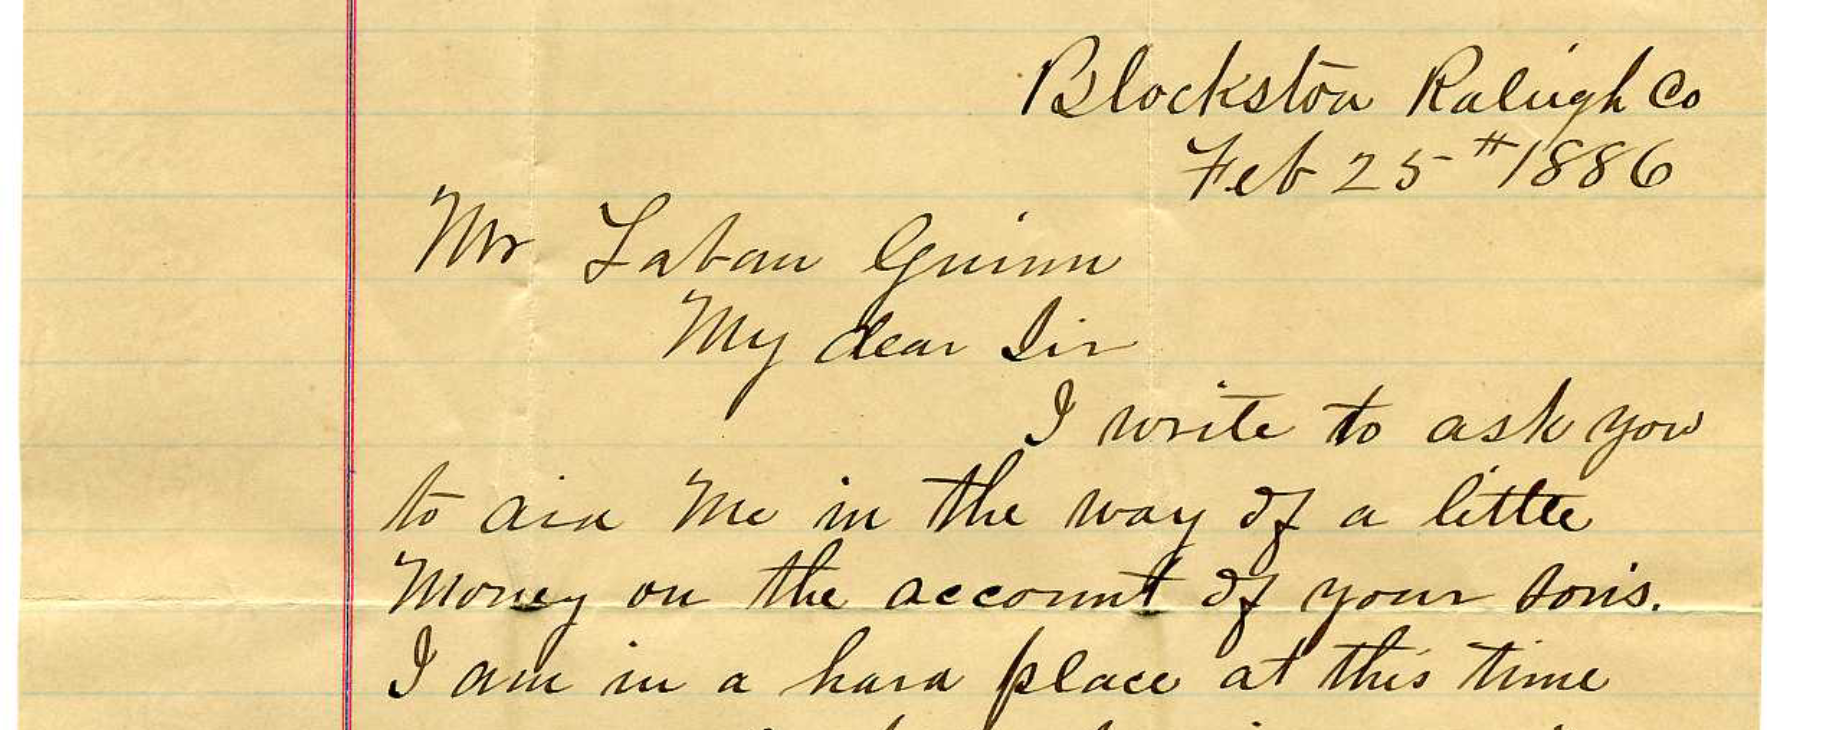 Blockston Raleigh Co
Feb 25th 1886
Mr Laban Guinn
My dear Sir
I write to ask you
to aid me in the way of a little
Money on the account of your sons.
I am in a hard place at this time